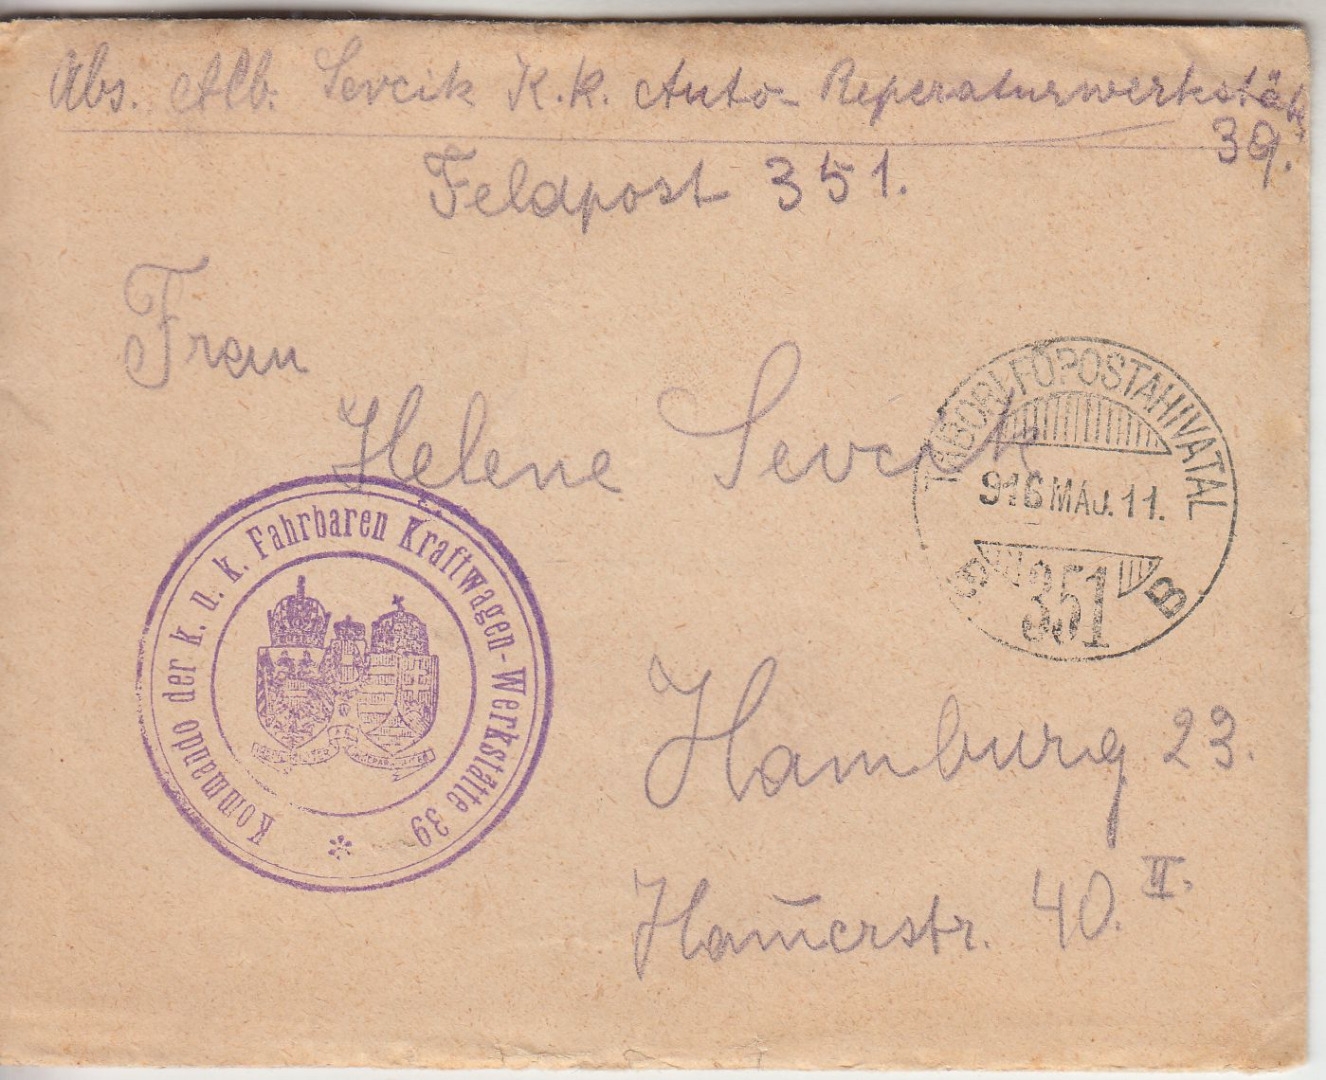 Abs. Alb. Sevcik K.K. Auto-Reperaturwerkstätte
39.
Feldpost 351.
Frau
Helene Sevcik
TÁBORI FŐPOSTAHIVATAL
916 MÁJ. 11.
351
B
Kommando der k. u. k. Fahrbaren Kraftwagen-Werkstätte 39
Hamburg 23.